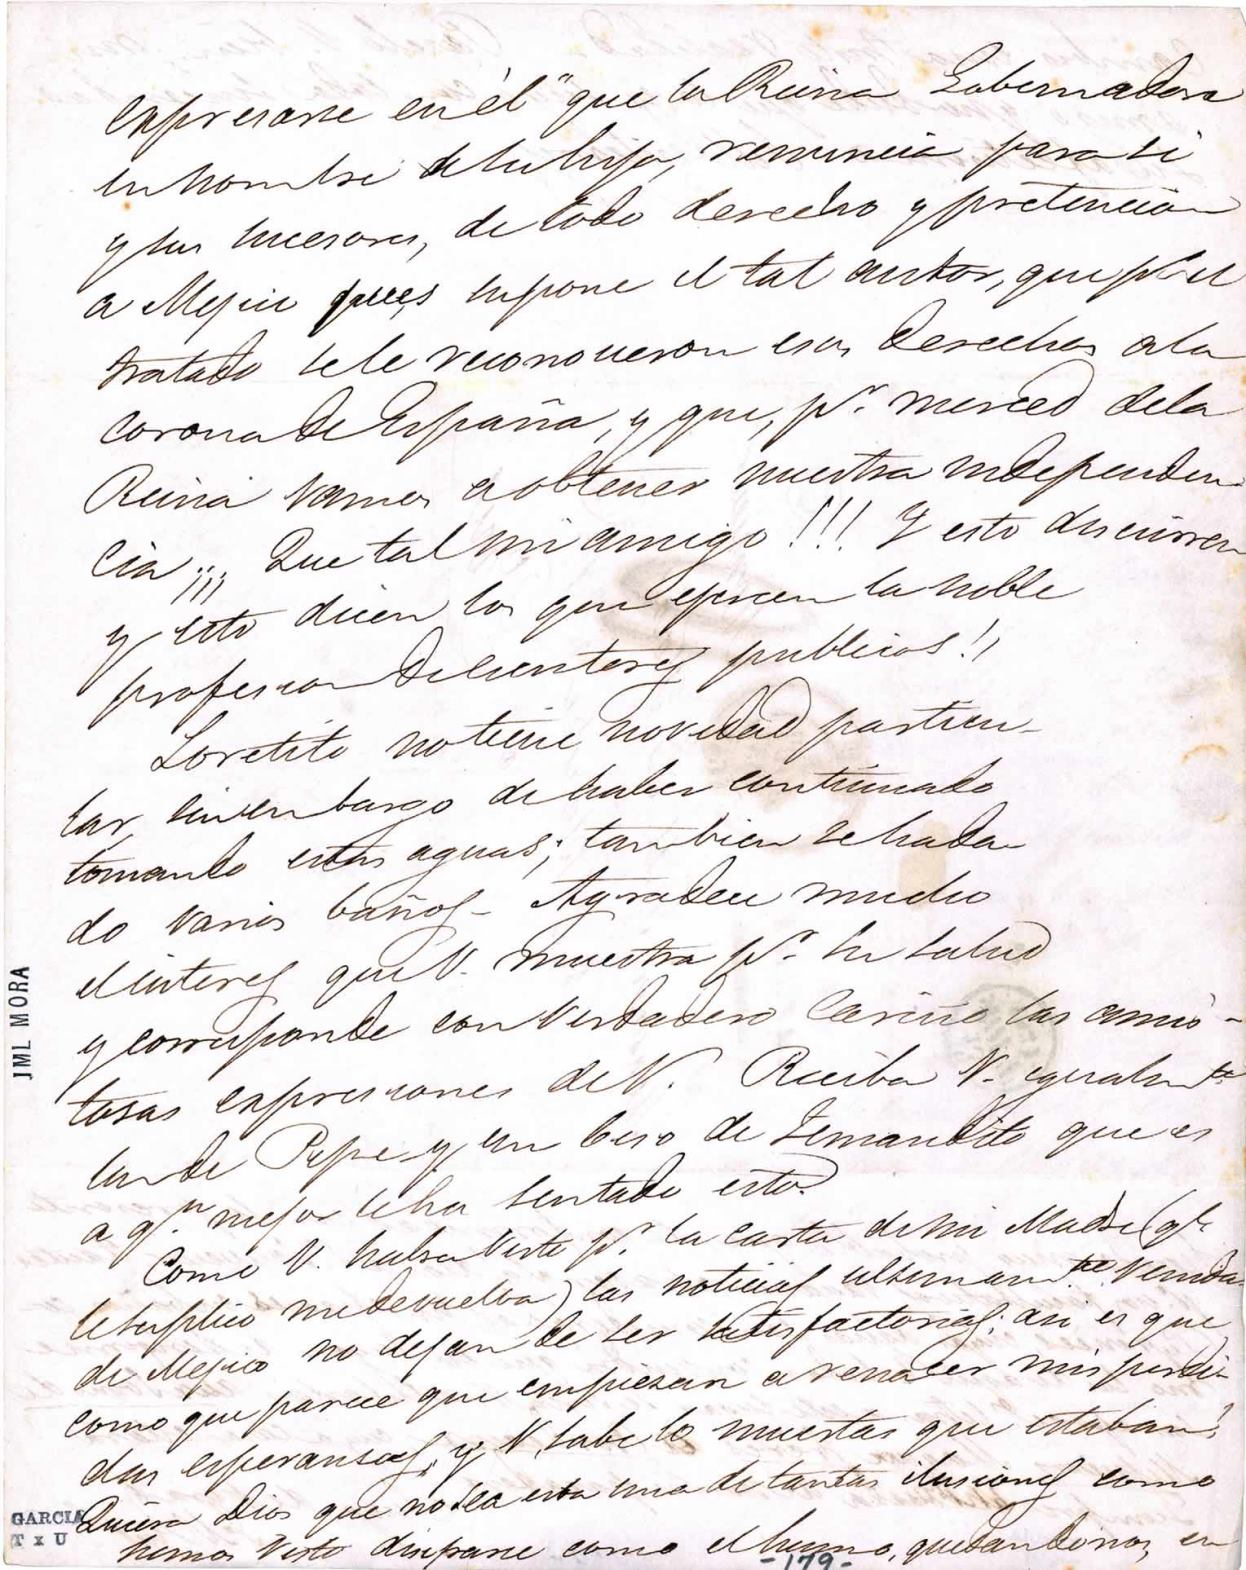 expresarse en él "que la Reina Gobernadora
en nombre de su hija, renuncia para si
y sus sucesores, de todo derecho y pretencion
a Mejico pues supone el tal autor, que pr. el
tratado se le reconocieron esos derechos a la
corona de España, y que, pr. merced de la
Reina vamos a obtener nuestra independen-
cia ¡¡¡ Que tal mi amigo!!! Y esto discurren
y esto dicen los que ejercen la noble
profesion de escritores publicos!!
Loretito no tiene novedad particu-
lar, sin embargo de haber continuado
tomando estas aguas; tambien se ha da-
do varios baños- Agradece mucho
el interes que V. muestra pr. su salud
y corresponde con verdadero cariño las amis-
tosas expresiones de V. Reciba V. igualmte.
las de Pepe y un beso de Fernandito que es
a qn. mejor le ha sentado esto.
Como V. habra visto pr. la carta de mi Madre (qe.
le suplico me devuelva) las noticias ultimamte. venidas
de Mejico no dejan de ser satisfactorias; asi es que
como que parece que empiezan a renacer mis perdi-
das esperansas, y V. sabe lo muertas que estaban!
Quiera Dios que no sea esta una de tantas ilusiones como
hemos visto disiparse como el humo, quedandonos en
JML MORA
GARCIA
T x U
-179-